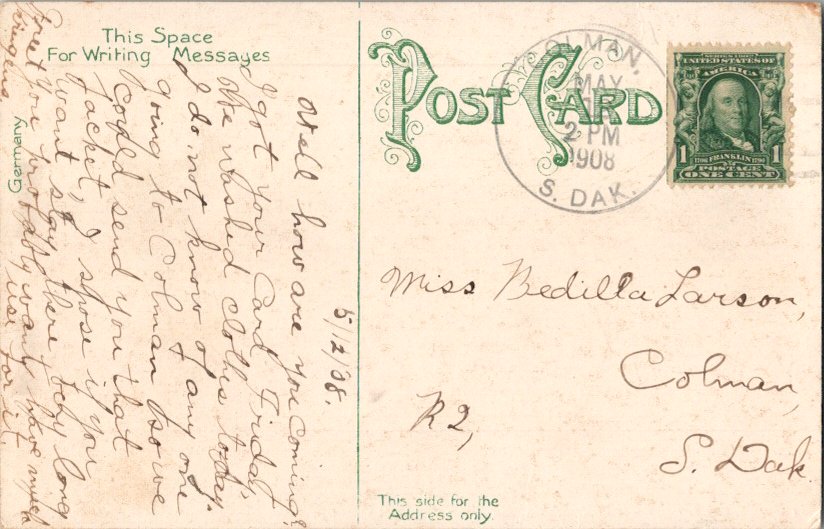 This Space
For Writing Messages
Germany
5/2/08.
Well how are you coming?
I got your Card Friday,
We washed clothes today.
I do not know of any one
going to Colman so we
could send you that
jacket, I spose if you
want stay there very long
you probably want have much
use for it.
Greet
POST CARD
COLMAN,
MAY
2 PM
1908
S. DAK.
SERIES 1902
UNITED STATES OF
AMERICA
1 1706 FRANKLIN 1790 1
POSTAGE
ONE CENT
Miss Bedilla Larson,
Colman,
R2,
S. Dak.
This side for the
Address only.